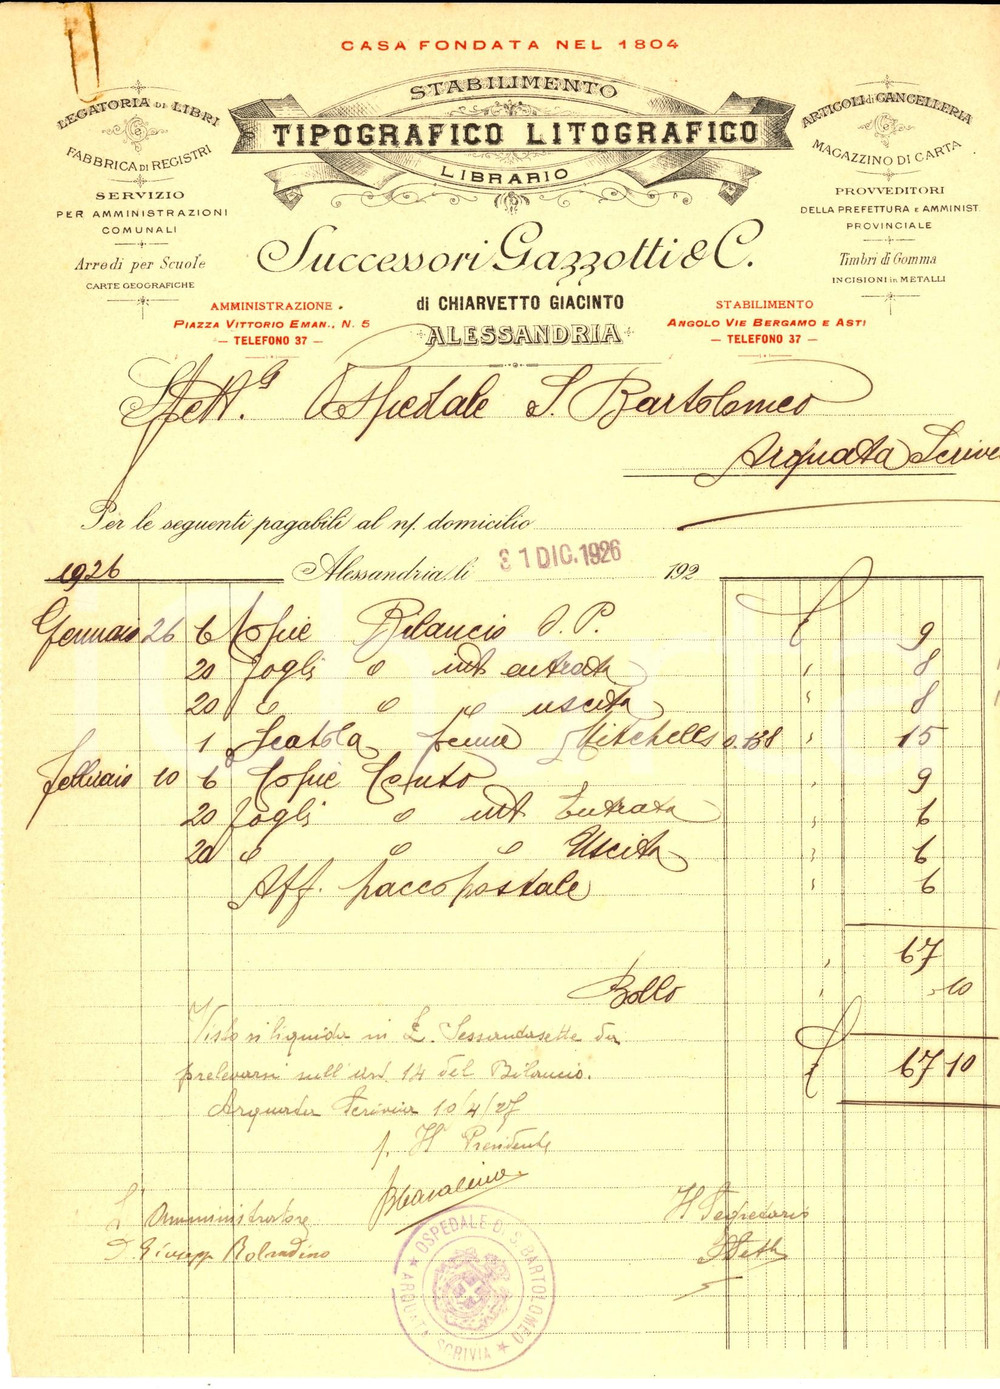 CASA FONDATA NEL 1804
STABILIMENTO
TIPOGRAFICO LITOGRAFICO
LIBRARIO
LEGATORIA DI LIBRI
FABBRICA DI REGISTRI
SERVIZIO
PER AMMINISTRAZIONI
COMUNALI
Arredi per Scuole
CARTE GEOGRAFICHE
ARTICOLI di CANCELLERIA
MAGAZZINO DI CARTA
PROVVEDITORI
DELLA PREFETTURA E AMMINIST.
PROVINCIALE
Timbri di Gomma
INCISIONI in METALLI
Successori Gazzotti & C.
di CHIARVETTO GIACINTO
ALESSANDRIA
AMMINISTRAZIONE
PIAZZA VITTORIO EMAN., N. 5
— TELEFONO 37 —
STABILIMENTO
ANGOLO VIE BERGAMO E ASTI
— TELEFONO 37 —
Spett. Ospedale S. Bartolomeo
Arquata Scrivia
Per le seguenti pagabili al n/. domicilio
1926 Alessandria, li 31 DIC. 1926 192
Gennaio 26 6 Copie Bilancio O. P. £ 9
20 fogli " int entrata " 8
20 " " " uscita " 8
1 Scatola penne Mitchells 0.138 " 15
Febbraio 10 6 Copie Conto 9
20 fogli " int Entrata " 6
20 " " " Uscita " 6
Aff. pacco postale " 6
" 67
Bollo " -10
£ 67 10
Visto si liquida in £. Sessantasette da
prelevarsi sull'art 14 del Bilancio.
Arquata Scrivia 10/4/27
p. Il Presidente
L'Amministratore
D. Giuseppe Rolandino
Il Segretario
OSPEDALE DI S. BARTOLOMEO
ARQUATA SCRIVIA